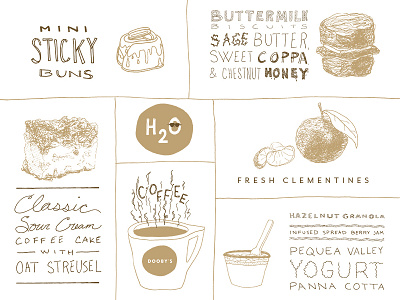 MINI
STICKY
BUNS
BUTTERMILK
BISCUITS
SAGE BUTTER,
SWEET COPPA
& CHESTNUT HONEY
H2O
FRESH CLEMENTINES
Classic
Sour Cream
COFFEE CAKE
WITH
OAT STREUSEL
COFFEE
DOOBY'S
HAZELNUT GRANOLA
INFUSED SPREAD BERRY JAM
PEQUEA VALLEY
YOGURT
PANNA COTTA